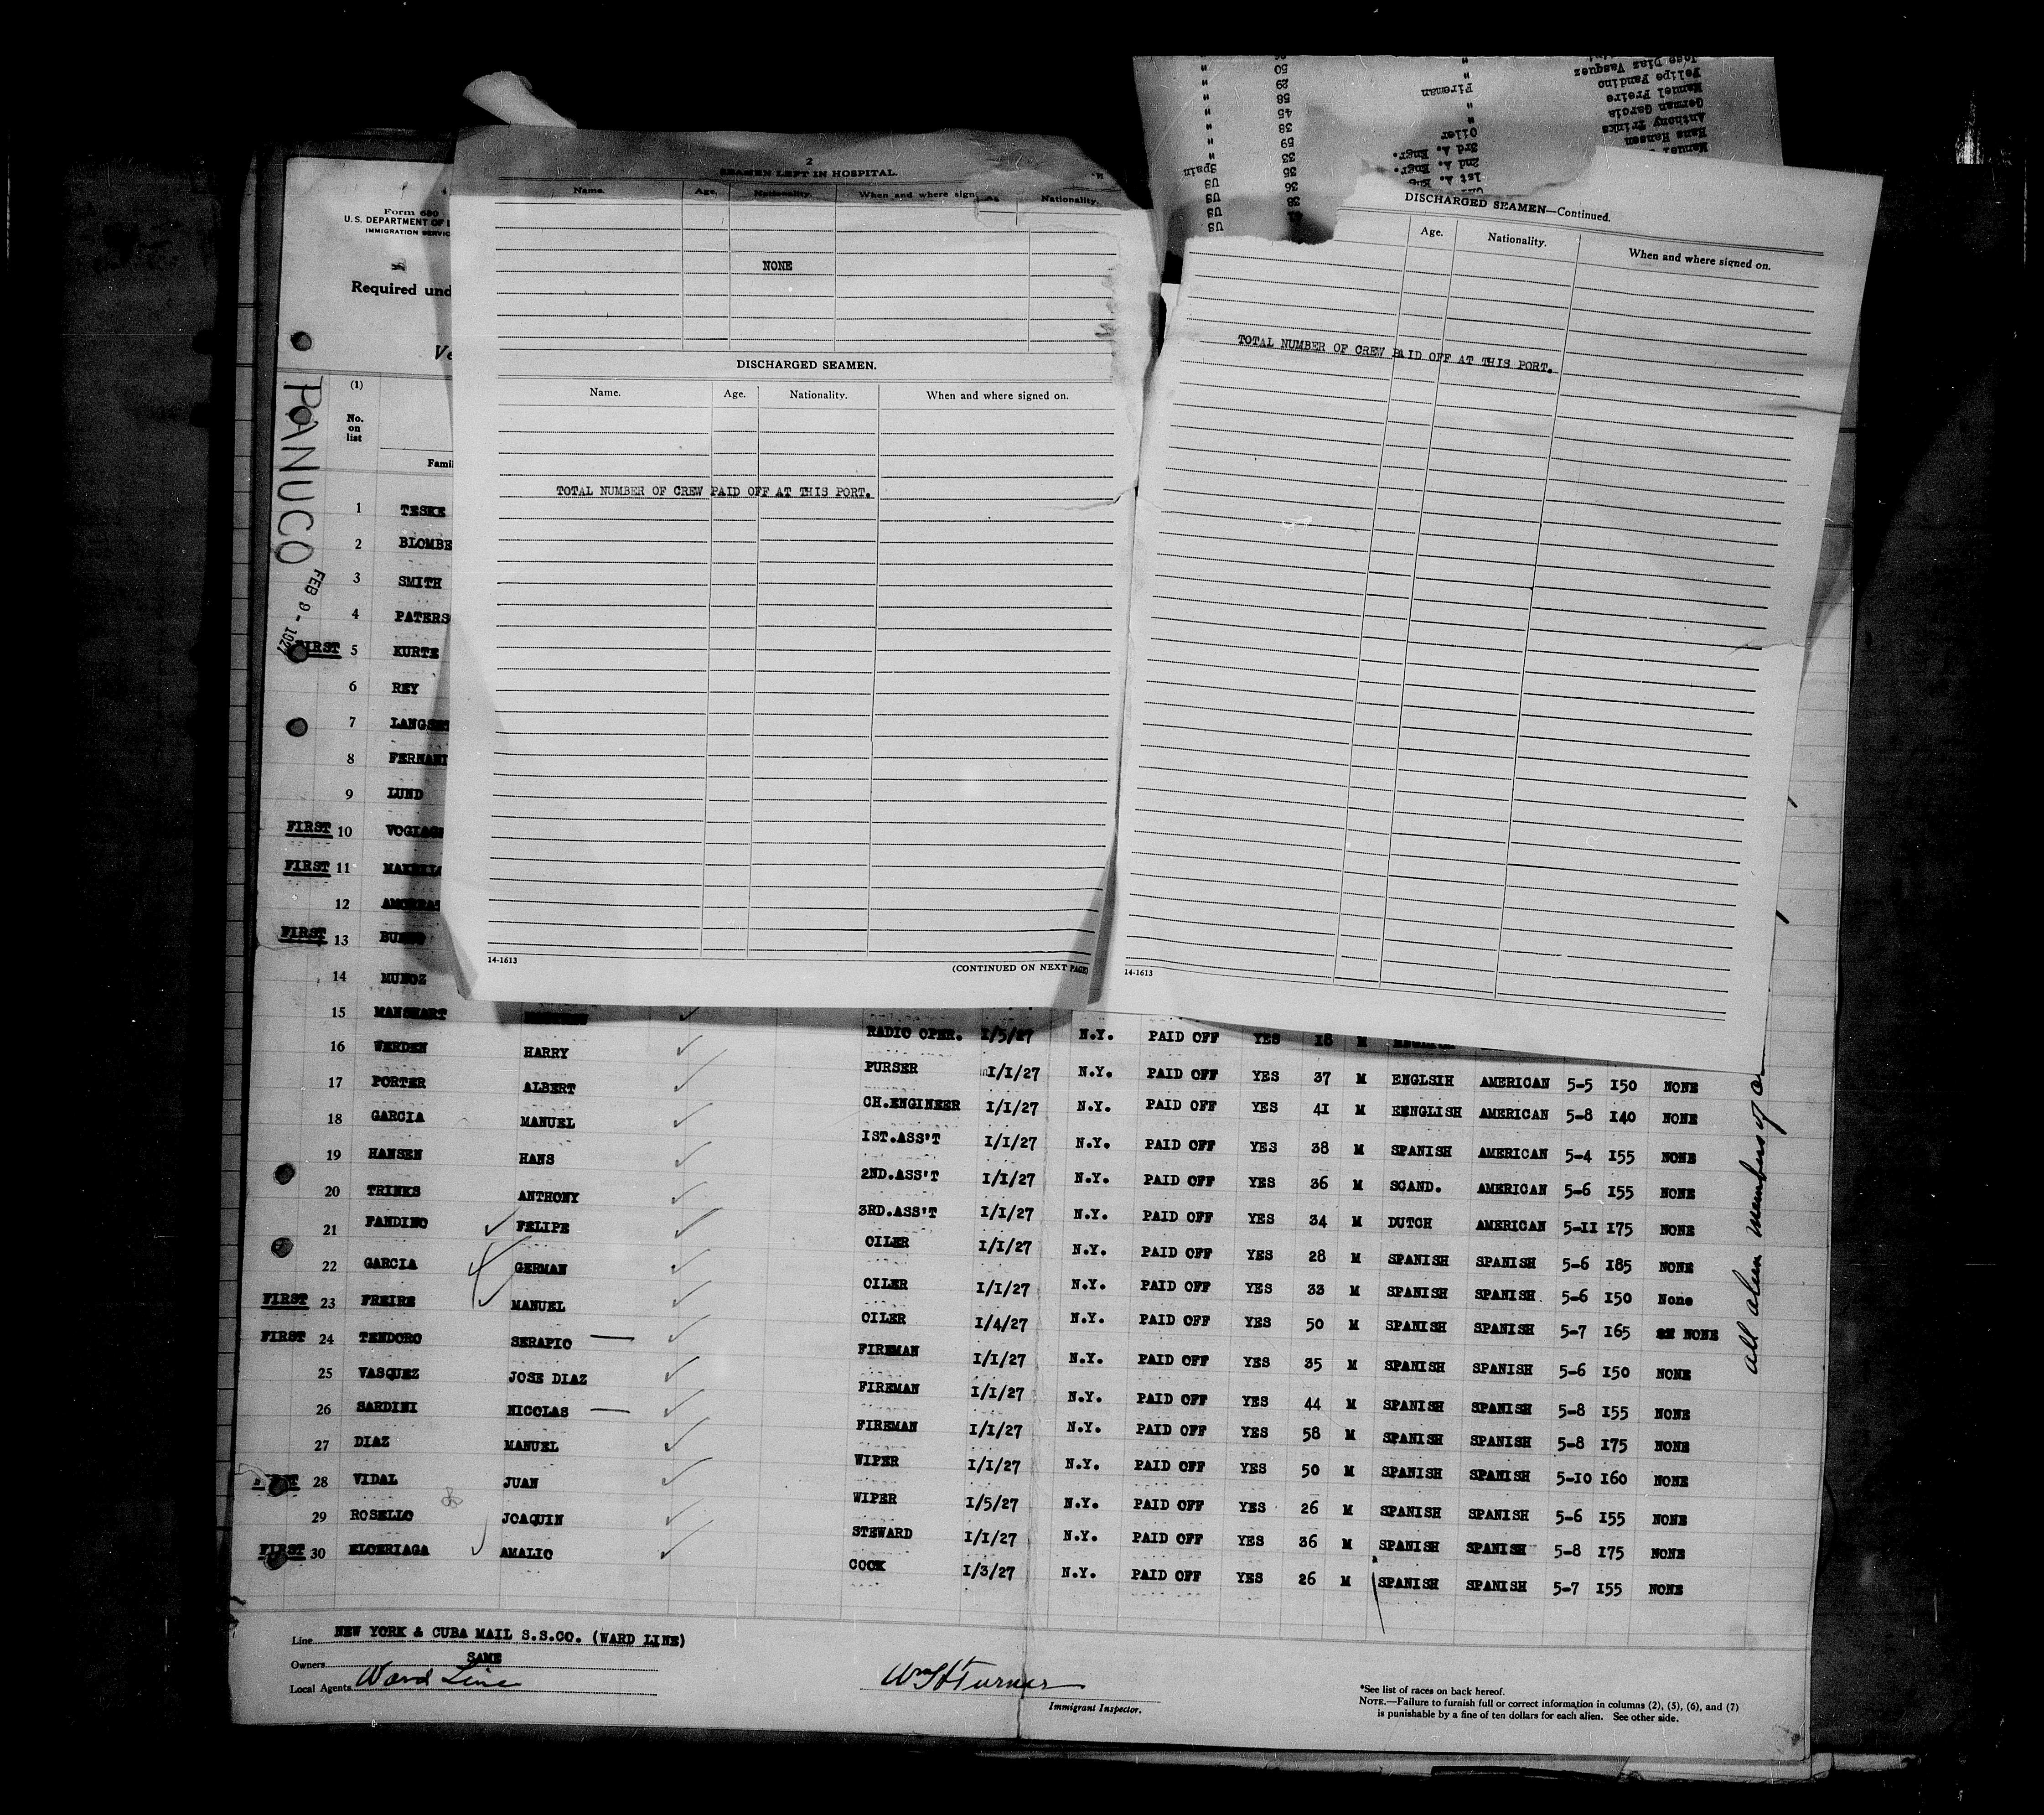 Name. Age. Nationality. When and where signed on.
SEAMEN LEFT IN HOSPITAL.
2
NONE
DISCHARGED SEAMEN.
Name. Age. Nationality. When and where signed on.
TOTAL NUMBER OF CREW PAID OFF AT THIS PORT.
14-1613
(CONTINUED ON NEXT PAGE)
DISCHARGED SEAMEN—Continued.
Age. Nationality. When and where signed on.
TOTAL NUMBER OF CREW PAID OFF AT THIS PORT.
14-1613
Jose Diaz Vasquez " 50 "
Felipe Fandino " 29 "
Manuel Freire Fireman 58 "
German Garcia " 45 "
Anthony Trinks Oiler 38 "
Hans Hansen 3rd A. Engr. 59 "
Manuel 2nd A. Engr. 33 Spain
1st A. 35 US
36 US
38 US
Form 680
U.S. DEPARTMENT OF
IMMIGRATION SERVIC
Required und
PANUCO
FEB 9 - 1927
(1)
No. on list
Famil
1 TESKE
2 BLOMBE
3 SMITH
4 PATERS
FIRST 5 KURTE
6 REY
7 LANGS
8 FERNAN
9 LUND
FIRST 10 VOGIAG
FIRST 11
12
FIRST 13
14 MUNOZ
15 MANSHART RADIO OPER. 1/5/27 N.Y. PAID OFF YES 18 M ENGLISH
16 WERDEN HARRY PURSER 1/1/27 N.Y. PAID OFF YES 37 M ENGLSIH AMERICAN 5-5 150 NONE
17 PORTER ALBERT CH.ENGINEER 1/1/27 N.Y. PAID OFF YES 41 M EENGLISH AMERICAN 5-8 140 NONE
18 GARCIA MANUEL 1ST.ASS'T 1/1/27 N.Y. PAID OFF YES 38 M SPANISH AMERICAN 5-4 155 NONE
19 HANSEN HANS 2ND.ASS'T 1/1/27 N.Y. PAID OFF YES 36 M SCAND. AMERICAN 5-6 155 NONE
20 TRINKS ANTHONY 3RD.ASS'T 1/1/27 N.Y. PAID OFF YES 34 M DUTCH AMERICAN 5-11 175 NONE
21 FANDINO FELIPE OILER 1/1/27 N.Y. PAID OFF YES 28 M SPANISH SPANISH 5-6 185 NONE
22 GARCIA GERMAN OILER 1/1/27 N.Y. PAID OFF YES 33 M SPANISH SPANISH 5-6 150 None
FIRST 23 FREIRE MANUEL OILER 1/4/27 N.Y. PAID OFF YES 50 M SPANISH SPANISH 5-7 165 NONE
FIRST 24 TENDORO SERAPIO FIREMAN 1/1/27 N.Y. PAID OFF YES 35 M SPANISH SPANISH 5-6 150 NONE
25 VASQUEZ JOSE DIAZ FIREMAN 1/1/27 N.Y. PAID OFF YES 44 M SPANISH SPANISH 5-8 155 NONE
26 SARDINI NICOLAS FIREMAN 1/1/27 N.Y. PAID OFF YES 58 M SPANISH SPANISH 5-8 175 NONE
27 DIAZ MANUEL WIPER 1/1/27 N.Y. PAID OFF YES 50 M SPANISH SPANISH 5-10 160 NONE
FIRST 28 VIDAL JUAN WIPER 1/5/27 N.Y. PAID OFF YES 26 M SPANISH SPANISH 5-6 155 NONE
29 ROSELLO JOAQUIN STEWARD 1/1/27 N.Y. PAID OFF YES 36 M SPANISH SPANISH 5-8 175 NONE
FIRST 30 ELORRIAGA AMALIO COOK 1/3/27 N.Y. PAID OFF YES 26 M SPANISH SPANISH 5-7 155 NONE
all alien members of
Line NEW YORK & CUBA MAIL S.S.CO. (WARD LINE)
Owners SAME
Local Agents Ward Line
Wm H Turner
Immigrant Inspector.
*See list of races on back hereof.
NOTE.—Failure to furnish full or correct information in columns (2), (5), (6), and (7)
is punishable by a fine of ten dollars for each alien. See other side.